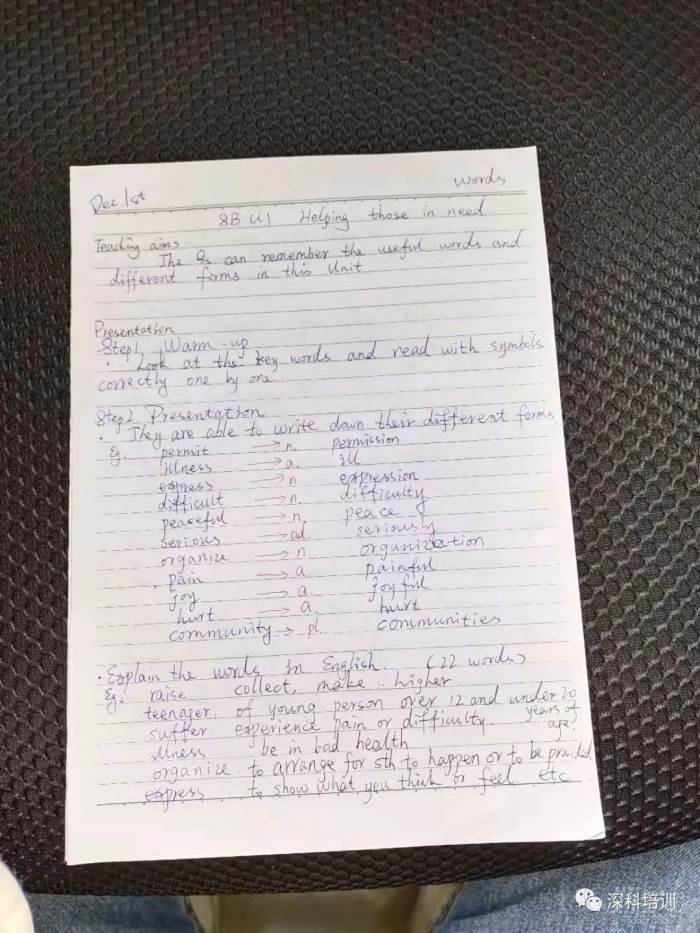 Dec. 1st words
8B U1 Helping those in need
Teaching aims:
The Ss can remember the useful words and
different forms in this Unit.
Presentation
Step1 Warm-up
· Look at the key words and read with symbols
correctly one by one.
Step2 Presentation
· They are able to write down their different forms
Eg. permit → n. permission
illness → a. ill
express → n. expression
difficult → n. difficulty
peaceful → n. peace
serious → ad. seriously
organize → n organization
pain → a painful
joy → a. joyful
hurt → a. hurt
community → pl. communities
· Explain the words in English. (22 words)
Eg. raise collect, make .. higher
teenager. of young person over 12 and under 20
years of
suffer experience pain or difficulty age.
illness : be in bad health
organize : to arrange for sth to happen or to be provided
express : to show what you think or feel etc.
深科培训